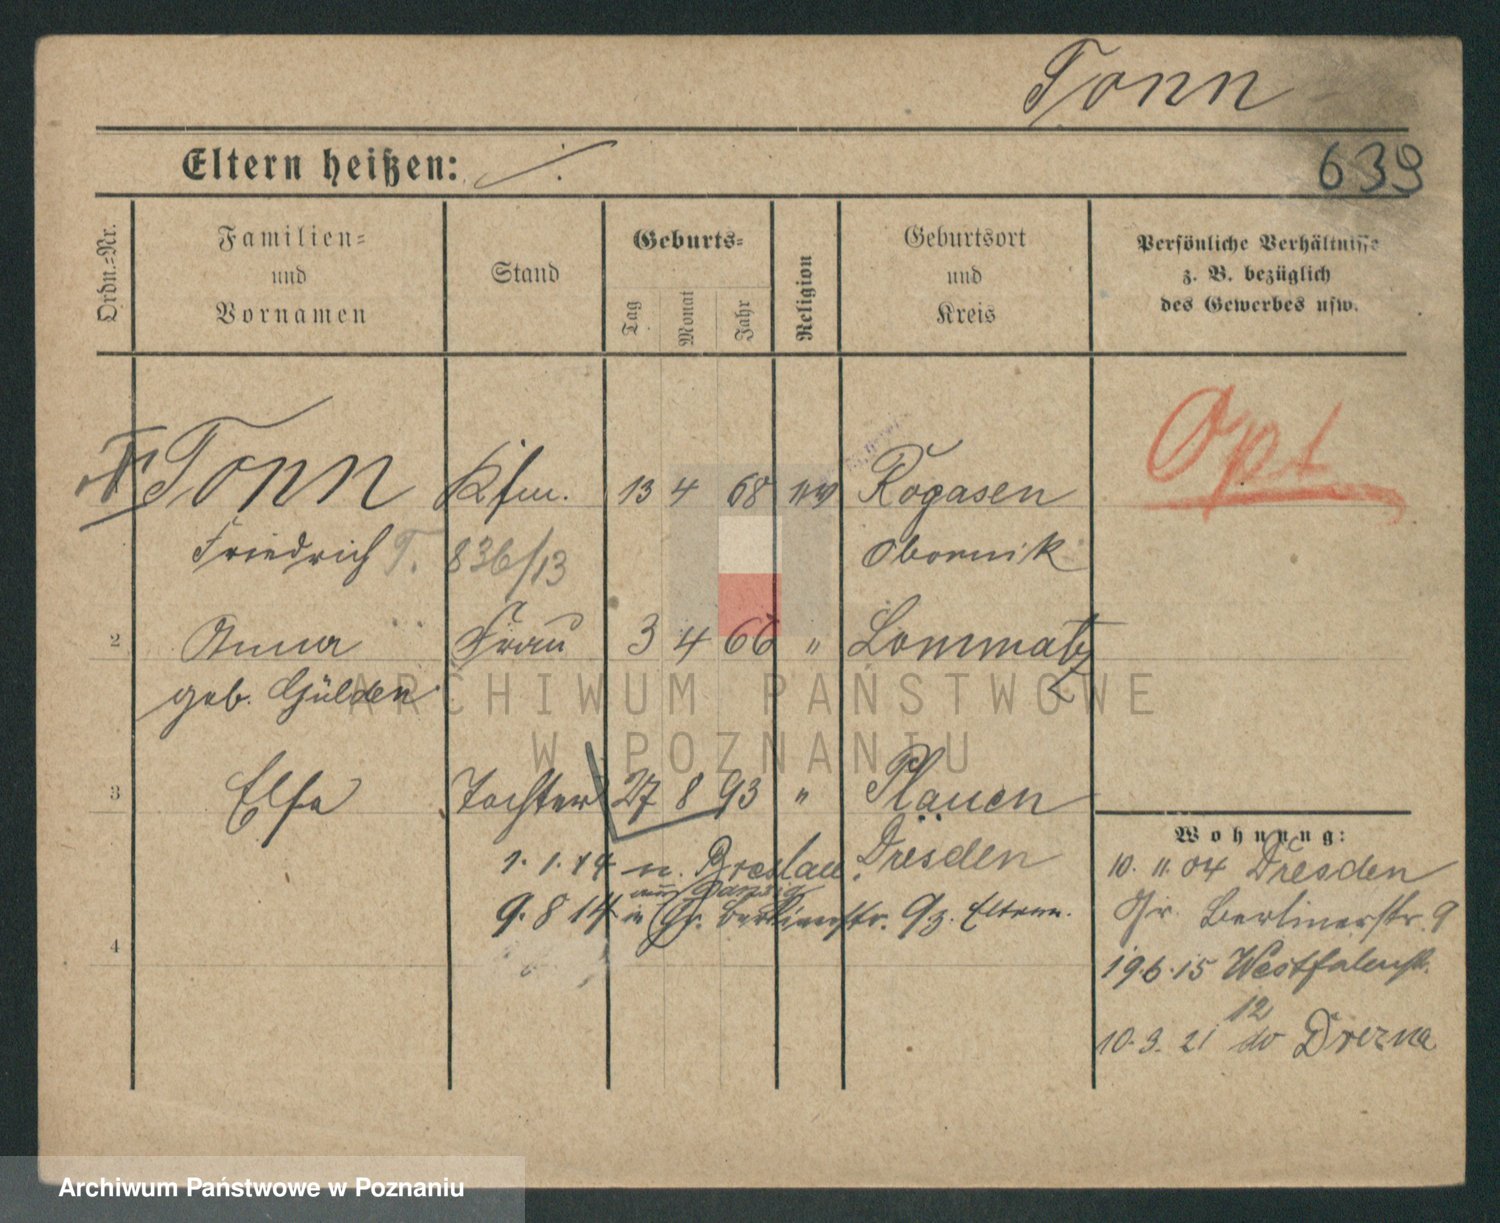 Tonn
Eltern heißen: ./.
639
Ordn.-Nr.
Familien-
und
Vornamen
Stand
Geburts-
Tag
Monat
Jahr
Religion
Geburtsort
und
Kreis
Persönliche Verhältnisse
z. B. bezüglich
des Gewerbes usw.
Tonn Kfm. 13 4 68 Rogasen
Opt.
Friedrich T. 836/13 Obornik
2 Anna Frau 3 4 66 " Lommatz
geb. Gülden
ARCHIWUM PAŃSTWOWE
W POZNANIU
3 Elsa Tochter 27 8 93 " Plauen
Dresden
1. 1. 14 n. Breslau
aus Danzig
9. 8 14 in Gr. Berlinerstr. 9 z. Eltern.
4
Wohnung:
10. 11. 04 Dresden
Gr. Berlinerstr. 9
19.6.15 Westfalenstr.
12
10. 3. 21 do Drezna
Archiwum Państwowe w Poznaniu